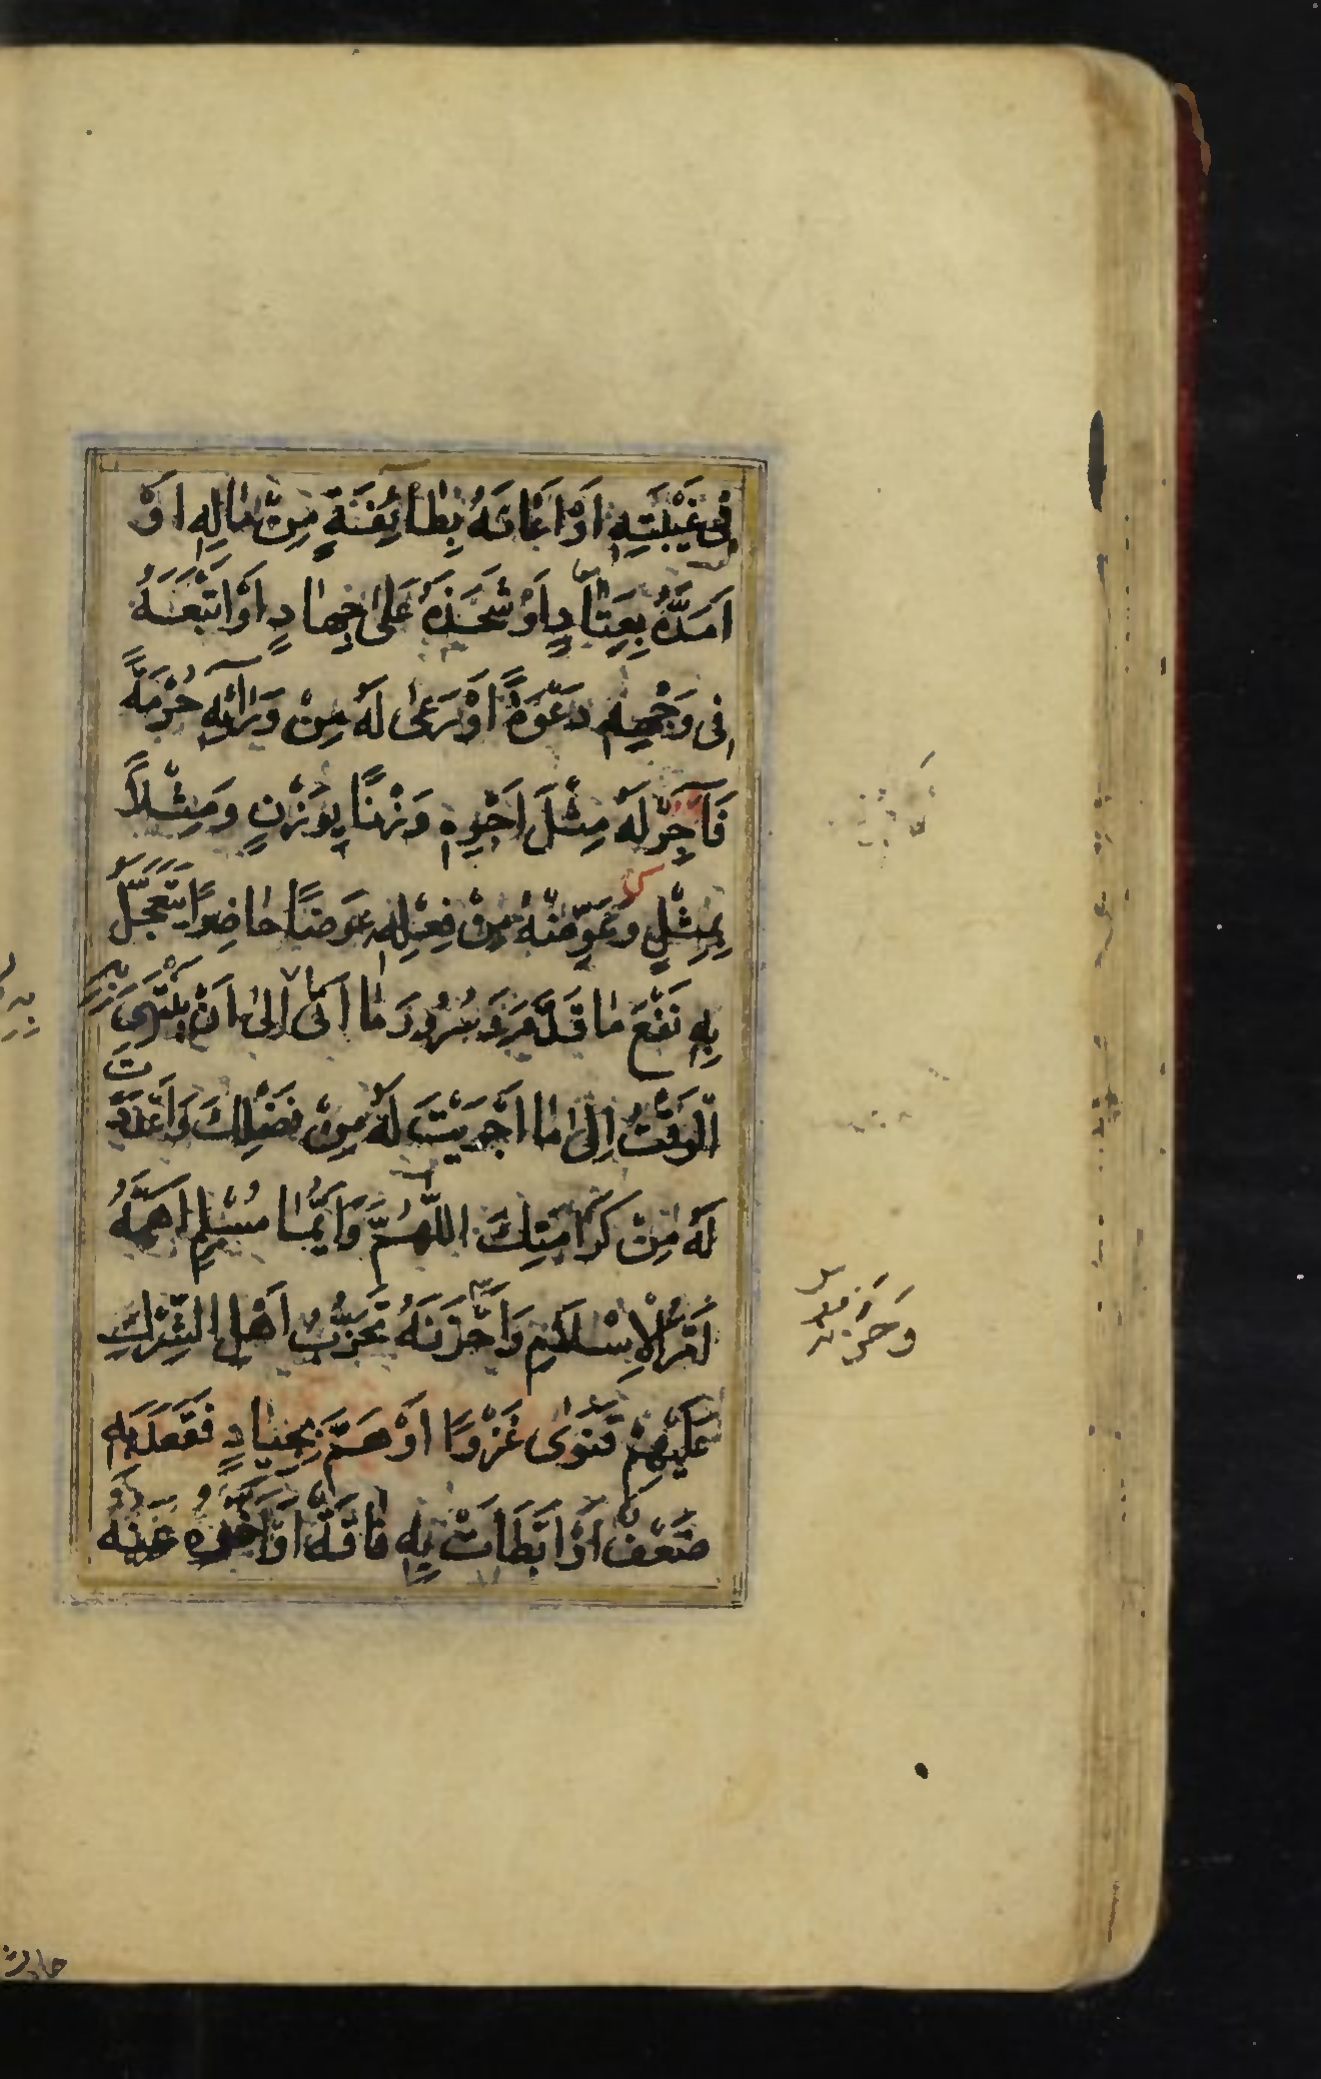 فِى غَيْبَتِهِ اَوْ اَعَانَهُ بِطَآئِفَةٍ مِنْ مَالِهِ اَوْ
اَمَدَّهُ بِعِتَادٍ اَوْ شَحَذَهُ عَلَى جِهَادٍ اَوْ اَتْبَعَهُ
فِى وَجْهِهِ دَعْوَةً اَوْ رَعَى لَهُ مِنْ وَرَآئِهِ حُرْمَةً
فَآجِرْ لَهُ مِثْلَ اَجْرِهِ وَزْنًا بِوَزْنٍ وَمِثْلاً
بِمِثْلٍ وَعَوِّضْهُ مِنْ فِعْلِهِ عِوَضًا حَاضِرًا يَتَعَجَّلُ
بِهِ نَفْعَ مَا قَدَّمَ وَسُرُورَ مَا اَتَى اِلَى اَنْ يَنْتَهِىَ بِهِ
الْوَقْتُ اِلَى مَا اَجْرَيْتَ لَهُ مِنْ فَضْلِكَ وَاَعْدَدْتَ
لَهُ مِنْ كَرَامَتِكَ اللّٰهُمَّ وَاَيُّمَا مُسْلِمٍ اَهَمَّهُ
اَمْرُ الْاِسْلَامِ وَاَحْزَنَهُ تَحَزُّبُ اَهْلِ الشِّرْكِ
عَلَيْهِمْ فَنَوَى غَزْوًا اَوْ هَمَّ بِجِهَادٍ فَقَعَدَ بِهِ
ضَعْفٌ اَوْ اَبْطَاَتْ بِهِ فَاقَةٌ اَوْ اَخَّرَهُ عَنْهُ